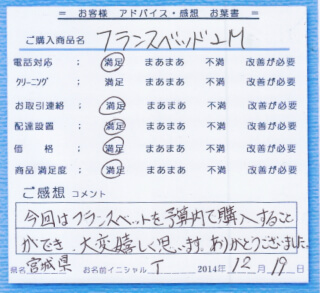 = お客様 アドバイス・感想 お葉書 =
ご購入商品名 フランスベッド2M
電話対応 満足 まあまあ 不満 改善が必要
クリーニング 満足 まあまあ 不満 改善が必要
お取引連絡 満足 まあまあ 不満 改善が必要
配達設置 満足 まあまあ 不満 改善が必要
価格 満足 まあまあ 不満 改善が必要
商品満足度 満足 まあまあ 不満 改善が必要
ご感想 コメント
今回はフランスベットを予算内で購入すること
ができ、大変嬉しく思います。ありがとうございました
県名 宮城県 お名前イニシャル T 2014年 12月 19日